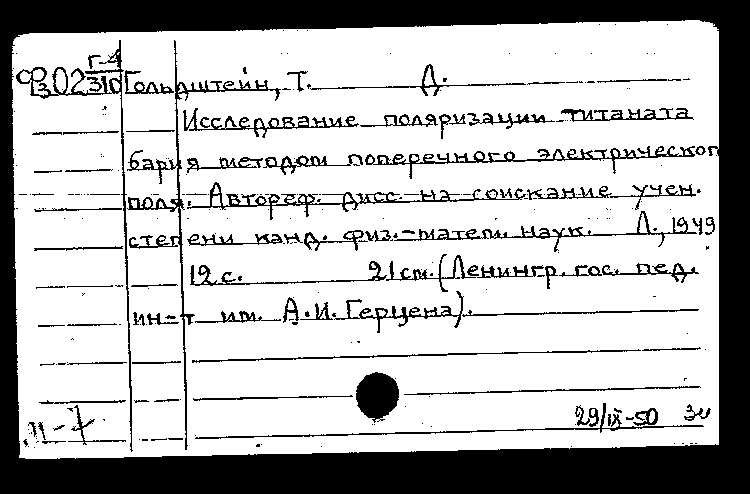 Г-4
302 310 Гольдштейн, Т. Д.
Исследование поляризации титаната
бария методом поперечного электрического
поля. Автореф. дисс. на соискание учен.
степени канд. физ.-матем. наук. Л., 1949
12 с. 21 см. (Ленингр. гос. пед.
ин-т им. А.И. Герцена).
29/IX-50